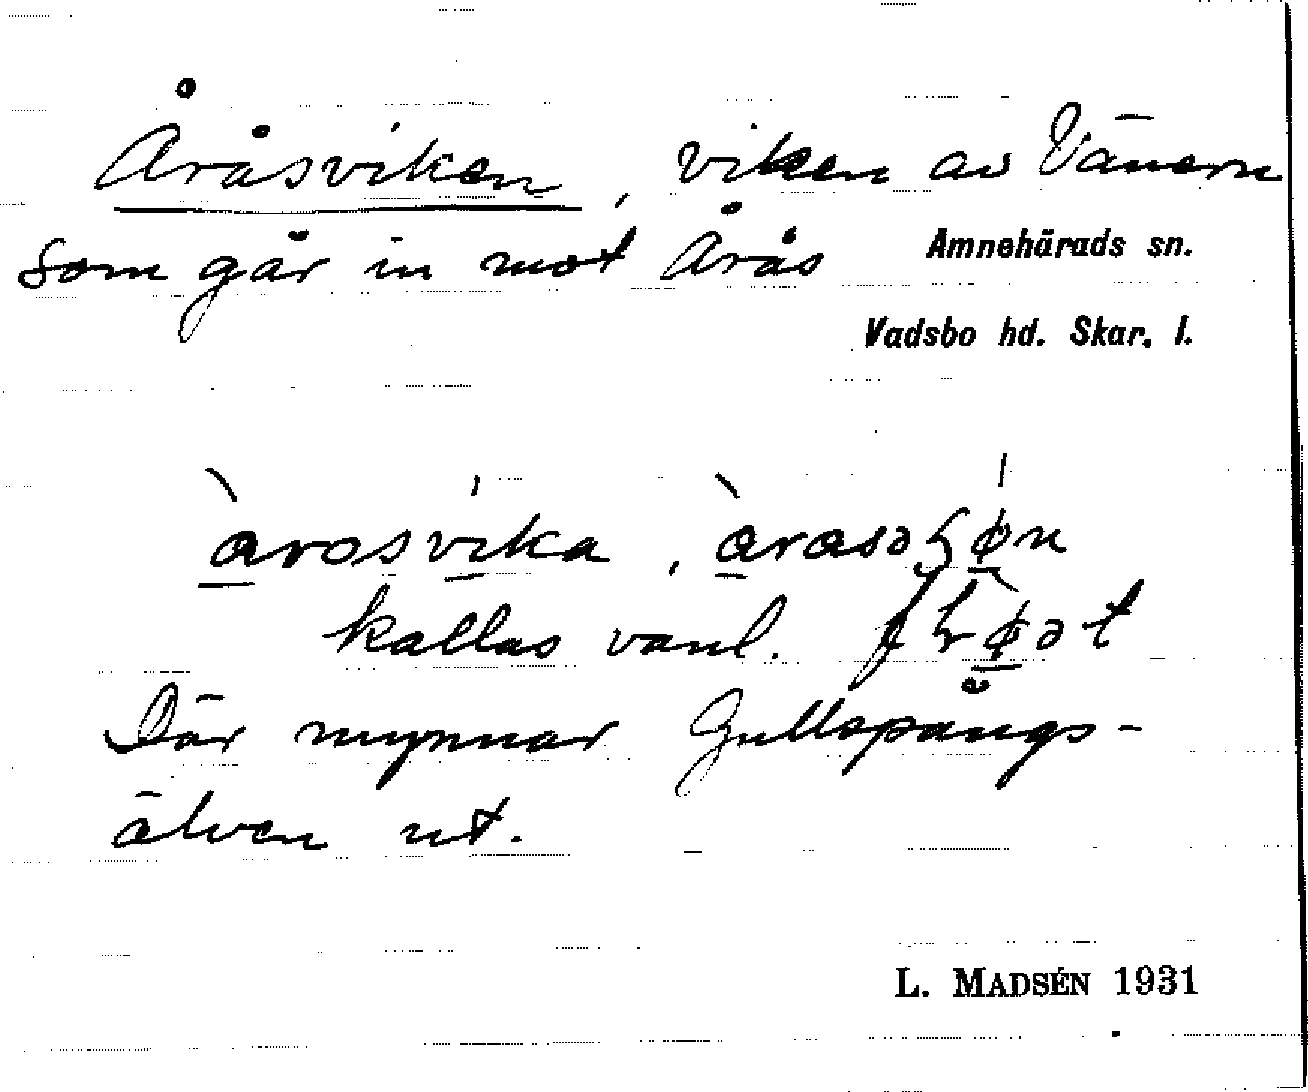 Åråsviken, viken av Vänern
som går in mot Årås
Amnehärads sn.
Vadsbo hd. Skar. l.
àrosvika,
kallas vanl.
Där mynnar Gullspångs-
älven ut.
L. MADSÉN 1931